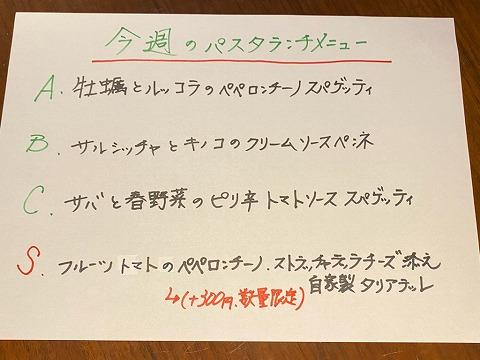 今週のパスタランチメニュー
A. 牡蠣とルッコラのペペロンチーノ スパゲッティ
B. サルシッチャとキノコのクリームソースペンネ
C. サバと春野菜のピリ辛トマトソース スパゲッティ
S. フルーツトマトのペペロンチーノ、ストラッチャテッラチーズ添え
自家製タリアテッレ
↳(+300円、数量限定)